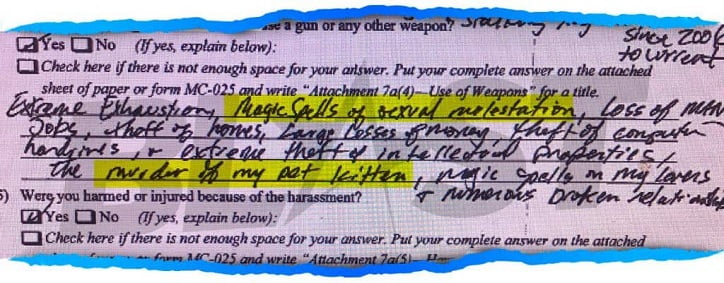 use a gun or any other weapon?
since 200
to current
Yes No (If yes, explain below):
Check here if there is not enough space for your answer. Put your complete answer on the attached
sheet of paper or form MC-025 and write "Attachment 7a(4)—Use of Weapons" for a title.
Extreme Exhaustion, Magic Spells of sexual molestation, Loss of
Jobs, theft of homes, Large Losses of money, theft of computer
hardrives, extreme theft of intellectual properties,
the murder of my pet kitten, magic spells on my lovers
& numerous broken relationships
5) Were you harmed or injured because of the harassment?
Yes No (If yes, explain below):
Check here if there is not enough space for your answer. Put your complete answer on the attached
form MC-025 and write "Attachment 7a(5)—